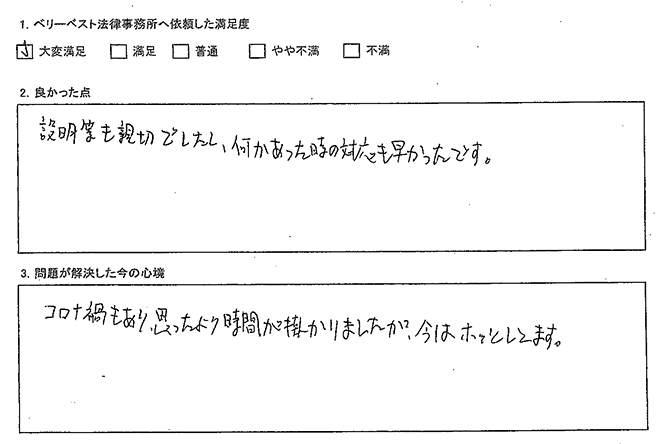 1. ベリーベスト法律事務所へ依頼した満足度
☑ 大変満足 □ 満足 □ 普通 □ やや不満 □ 不満
2. 良かった点
説明等も親切でしたし、何かあった時の対応も早かったです。
3. 問題が解決した今の心境
コロナ禍もあり、思ったより時間が掛かりましたが、今はホッとしてます。